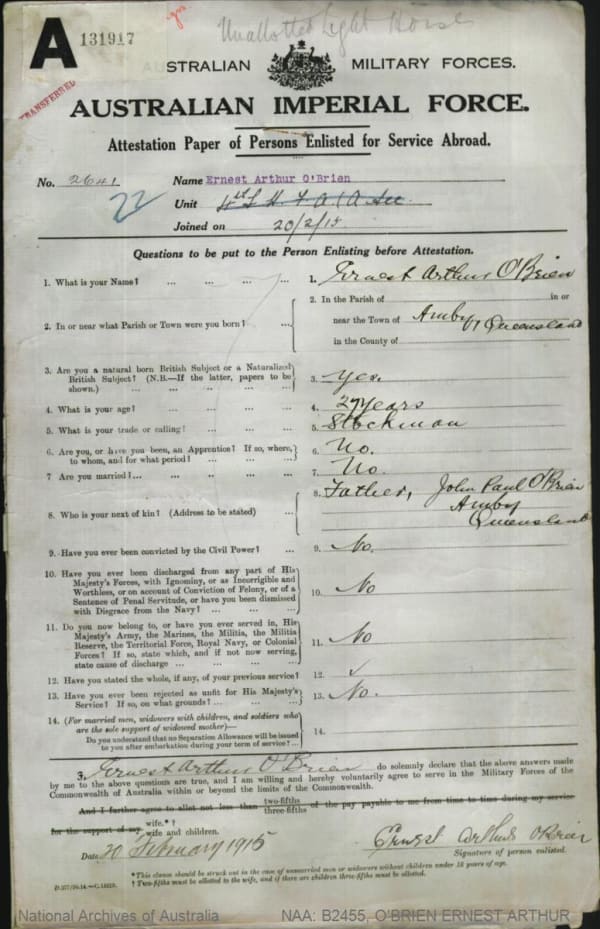 A 131917
Unallotted Light Horse
TRANSFERRED
AUSTRALIAN MILITARY FORCES.
AUSTRALIAN IMPERIAL FORCE.
Attestation Paper of Persons Enlisted for Service Abroad.
No. 2641 Name Ernest Arthur O'Brien
22 Unit
Joined on 20/2/15
Questions to be put to the Person Enlisting before Attestation.
1. What is your Name? ... ... ... ... 1. Ernest Arthur O'Brien
2. In or near what Parish or Town were you born? ... 2. In the Parish of in or
near the Town of Amby, Queensland
in the County of
3. Are you a natural born British Subject or a Naturalized
British Subject? (N.B.—If the latter, papers to be
shown.) ... ... ... ... 3. Yes.
4. What is your age? ... ... ... ... 4. 27 Years
5. What is your trade or calling? ... ... ... 5. Stockman
6. Are you, or have you been, an Apprentice? If so, where,
to whom, and for what period? ... ... ... 6. No.
7 Are you married?... ... ... ... ... 7. No.
8. Who is your next of kin? (Address to be stated) ... 8. Father, John Paul O'Brien
Amby
Queensland
9. Have you ever been convicted by the Civil Power? ... 9. No.
10. Have you ever been discharged from any part of His
Majesty's Forces, with Ignominy, or as Incorrigible and
Worthless, or on account of Conviction of Felony, or of a
Sentence of Penal Servitude, or have you been dismissed
with Disgrace from the Navy? ... ... ... 10. No
11. Do you now belong to, or have you ever served in, His
Majesty's Army, the Marines, the Militia, the Militia
Reserve, the Territorial Force, Royal Navy, or Colonial
Forces? If so, state which, and if not now serving,
state cause of discharge ... ... ... ... 11. No
12. Have you stated the whole, if any, of your previous service? 12. ✓
13. Have you ever been rejected as unfit for His Majesty's
Service? If so, on what grounds? ... ... ... 13. No.
14. (For married men, widowers with children, and soldiers who
are the sole support of widowed mother)—
Do you understand that no Separation Allowance will be issued
to you after embarkation during your term of service? ... 14.
I, Ernest Arthur O'Brien do solemnly declare that the above answers made
by me to the above questions are true, and I am willing and hereby voluntarily agree to serve in the Military Forces of the
Commonwealth of Australia within or beyond the limits of the Commonwealth.
And I further agree to allot not less than two-fifths three-fifths of the pay payable to me from time to time during my service
for the support of my wife.*†
wife and children.
Date 20 February 1915 Ernest Arthur O'Brien
Signature of person enlisted.
*This clause should be struck out in the case of unmarried men or widowers without children under 18 years of age.
†Two-fifths must be allotted to the wife, and if there are children three-fifths must be allotted.
National Archives of Australia NAA: B2455, O'BRIEN ERNEST ARTHUR